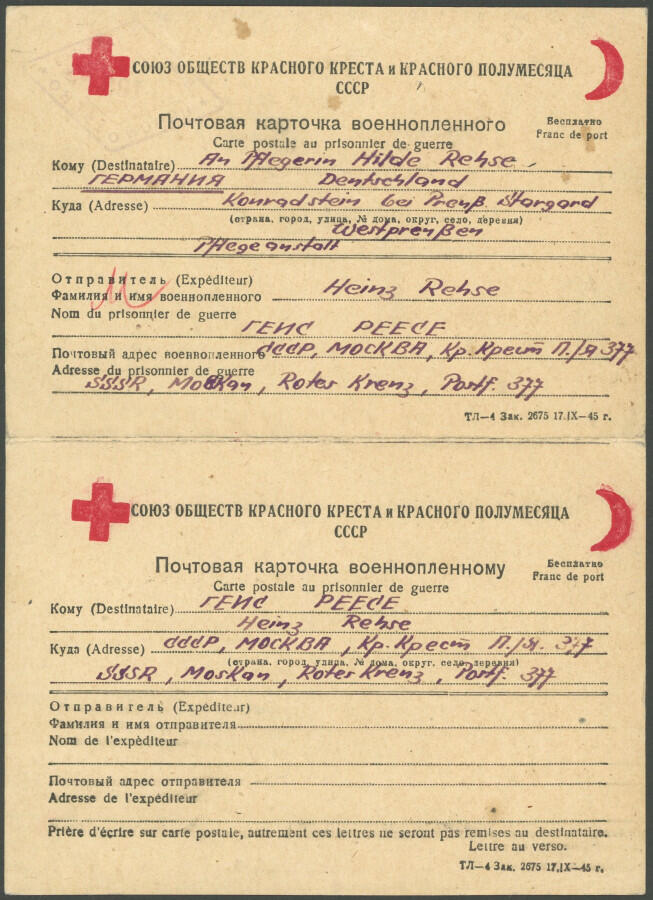 СОЮЗ ОБЩЕСТВ КРАСНОГО КРЕСТА и КРАСНОГО ПОЛУМЕСЯЦА
СССР
Почтовая карточка военнопленного
Бесплатно
Carte postale au prisonnier de guerre
Franc de port
Кому (Destinataire) An Pflegerin Hilde Rehse
ГЕРМАНИЯ Deutschland
Куда (Adresse) Konradstein bei Preuß Stargard
(страна, город, улица, № дома, округ, село, деревня)
Westpreußen
Pflegeanstalt
Отправитель (Expéditeur)
Фамилия и имя военнопленного Heinz Rehse
Nom du prisonnier de guerre
ГЕИС РЕЕСЕ
Почтовый адрес военнопленного СССР, МОСКВА, Кр. Крест П./Я 377
Adresse du prisonnier de guerre
SSSR, Moskau, Rotes Kreuz, Postf. 377
ТЛ—4 Зак. 2675 17.IX—45 г.
СОЮЗ ОБЩЕСТВ КРАСНОГО КРЕСТА и КРАСНОГО ПОЛУМЕСЯЦА
СССР
Почтовая карточка военнопленному
Бесплатно
Carte postale au prisonnier de guerre
Franc de port
Кому (Destinataire) ГЕИС РЕЕСЕ
Heinz Rehse
Куда (Adresse) СССР, МОСКВА, Кр. Крест П./Я. 377
(страна, город, улица, № дома, округ, село, деревня)
SSSR, Moskau, Rotes Kreuz, Postf. 377
Отправитель (Expéditeur)
Фамилия и имя отправителя
Nom de l'expéditeur
Почтовый адрес отправителя
Adresse de l'expéditeur
Prière d'écrire sur carte postale, autrement ces lettres ne seront pas remises au destinataire.
Lettre au verso.
ТЛ—4 Зак. 2675 17.IX—45 г.